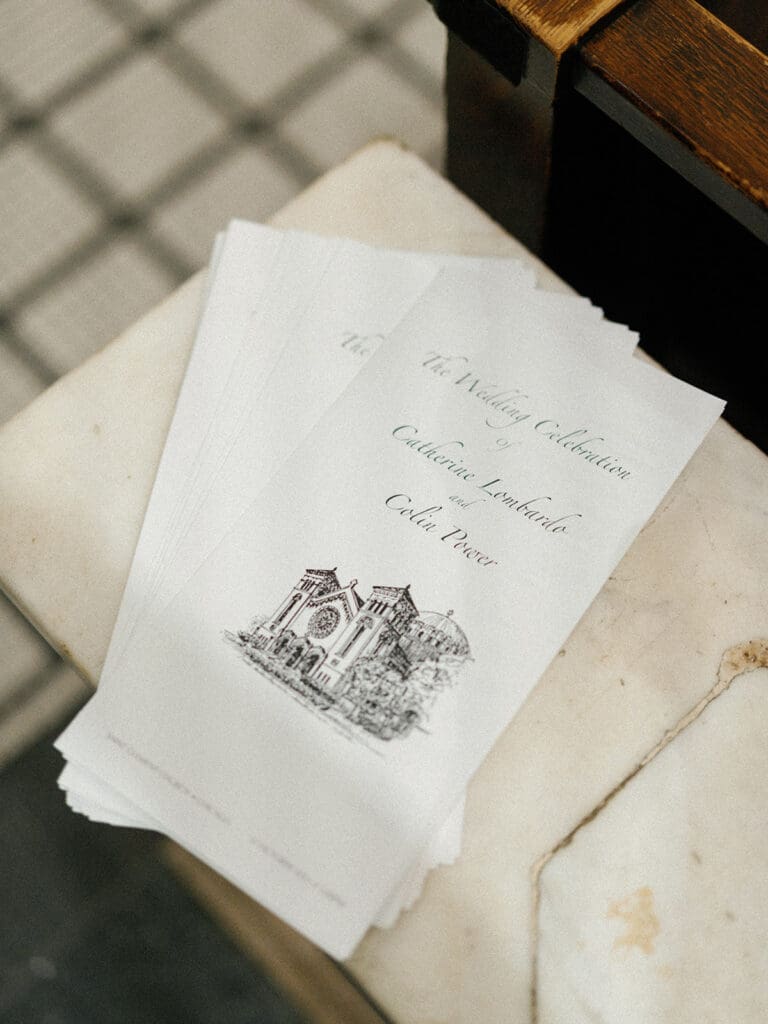 The Wedding Celebration
of
Catherine Lombardo
and
Colin Power
The